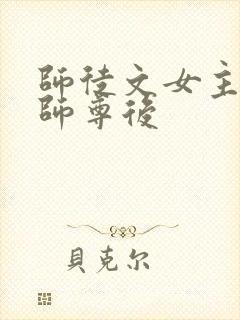 師徒文女主
師尊後
貝克尔